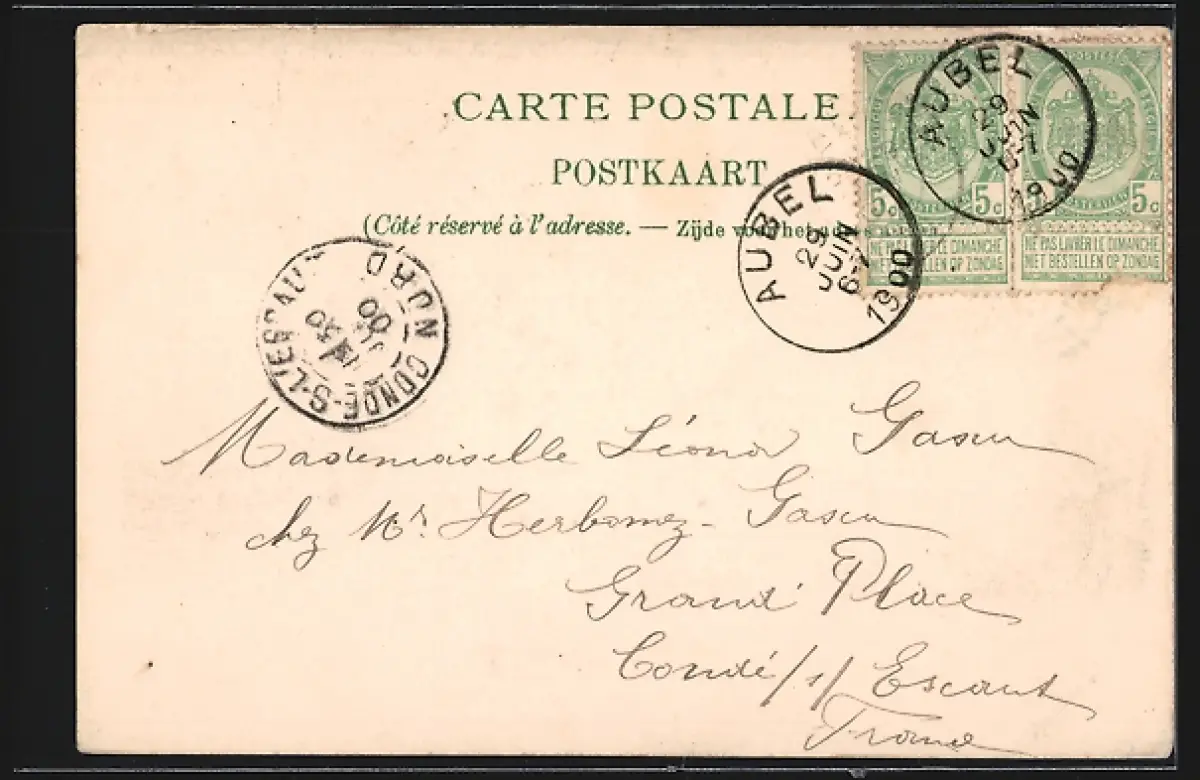 CARTE POSTALE.
POSTKAART
(Côté réservé à l'adresse. — Zijde voor het
AUBEL
29
JUIN
6-7
1900
AUBEL
29
JUIN
6-7
1900
5c 5c
NE PAS LIVRER LE DIMANCHE
NIET BESTELLEN OP ZONDAG
5c
NE PAS LIVRER LE DIMANCHE
NIET BESTELLEN OP ZONDAG
CONDÉ-S-L'ESCAUT
NORD
30
00
Mademoiselle Léonor
chez Mr. Herbomez-
Grand' Place
Condé/s/Escaut
France